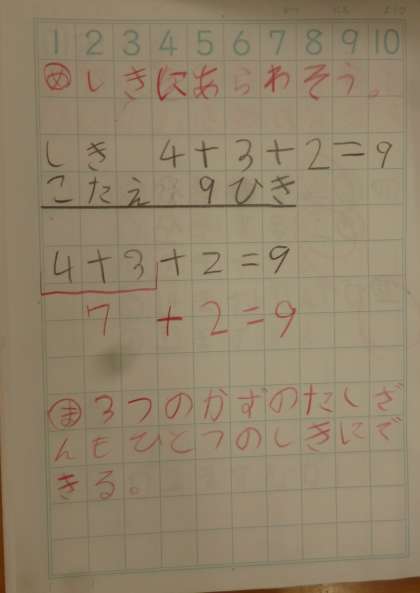 1 2 3 4 5 6 7 8 9 10
め しきにあらわそう。
しき 4+3+2=9
こたえ 9ひき
4+3+2=9
7+2=9
ま 3つのかずのたしざ
んもひとつのしきにで
きる。